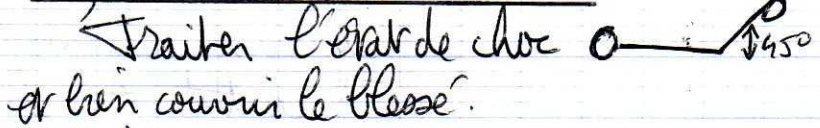 Traiter l'état de choc 45°
et bien couvrir le blessé.